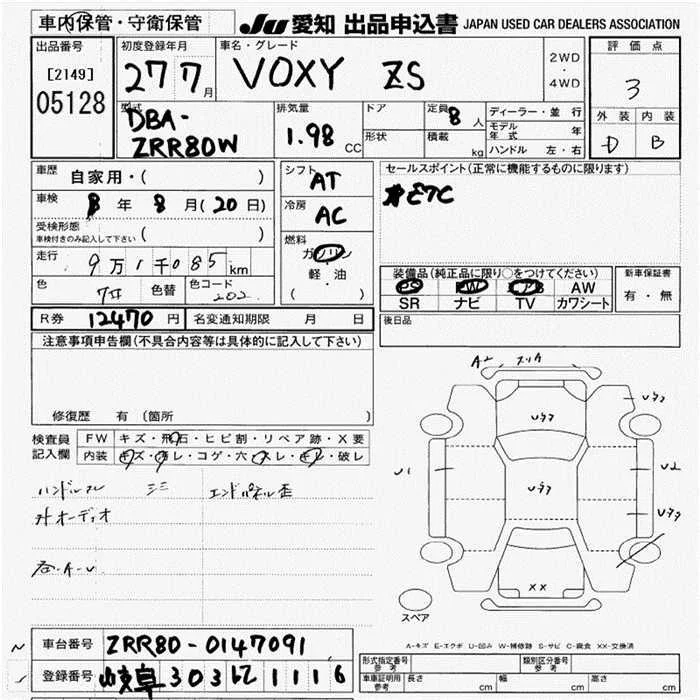 車内保管・守衛保管
JU 愛知 出品申込書 JAPAN USED CAR DEALERS ASSOCIATION
出品番号
[2149]
05128
初度登録年月
27 7月
車名・グレード
VOXY ZS
2WD
・
4WD
評価点
3
外装 内装
D B
型式
DBA-
ZRR80W
排気量
1.98 CC
ドア
形状
定員 8人
積載 kg
ディーラー・並行
モデル年式 年
ハンドル 左・右
車歴 自家用・( )
車検 8年 8月(20日)
受検形態
車検付きのみ記入して下さい ( )
走行 9万1千085km
色 色替 色コード 202
シフト AT
冷房 AC
燃料
ガソリン
・
軽・油
( )
セールスポイント(正常に機能するものに限ります)
ETC
装備品(純正品に限り○をつけてください)
PS PW エアB AW
SR ナビ TV カワシート
新車保証書
有・無
R券 12470円 名変通知期限 月 日
後日品
注意事項申告欄(不具合内容等は具体的に記入して下さい)
修復歴 有 (箇所 )
検査員
記入欄
FW キズ・飛石・ヒビ割・リペア跡・X要
内装 キズ・汚レ・コゲ・穴・スレ・キレ・破レ
ハンドルスレ エンドパネル歪
外オーディオ
A2 スリA
U77
U77
U77
U1
U2
U77
XX
スペア
A-キズ E-エクボ U-凹み W-補修跡 S-サビ C-腐食 XX-交換済
車台番号 ZRR80-0147091
登録番号 岐阜 303 1116
形式指定番号
参考
類別区分番号
参考
車庫証明用
参考
長さ cm 幅 cm 高さ cm